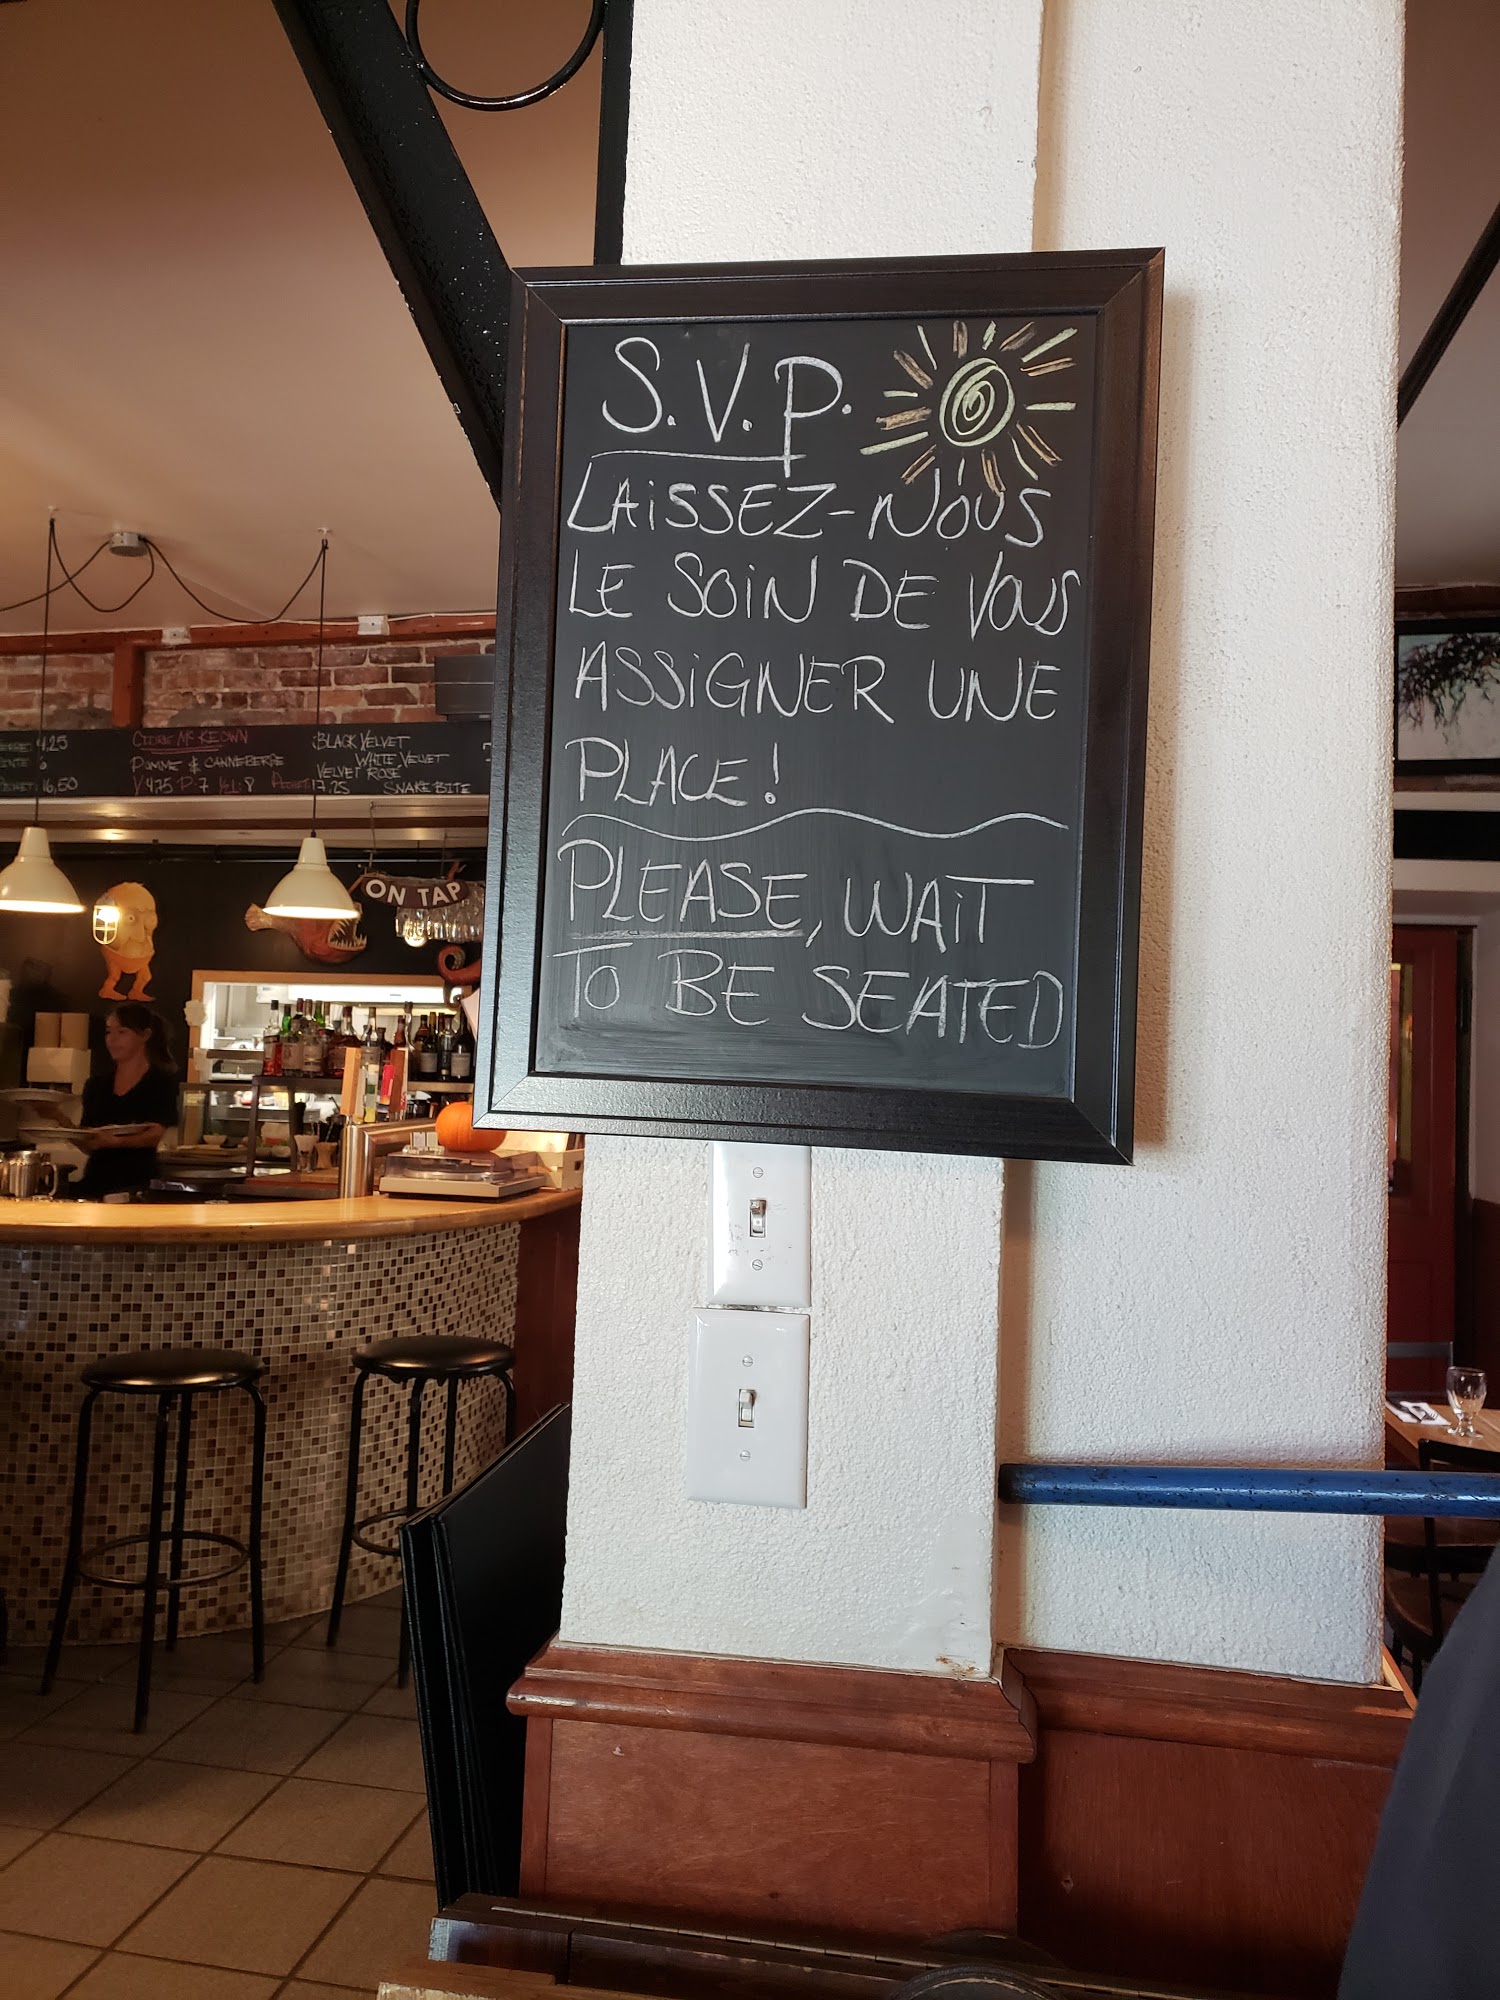 S.V.P.
LAISSEZ-NOUS
LE SOIN DE VOUS
ASSIGNER UNE
PLACE!
PLEASE, WAIT
TO BE SEATED
4.25
6
16,50
CIDRE McKEOWN
POMME & CANNEBERGE
V 4.75 P 7 8
17.25
BLACK VELVET
WHITE VELVET
VELVET ROSÉ
SNAKE BITE
ON TAP